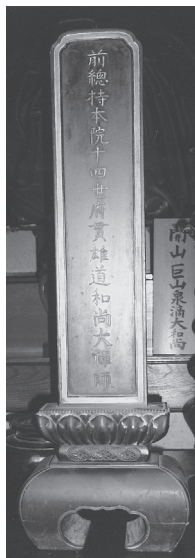 前總持本院十四世府貫雄道和尚大禅師
開山 巨山泉滴大和尚